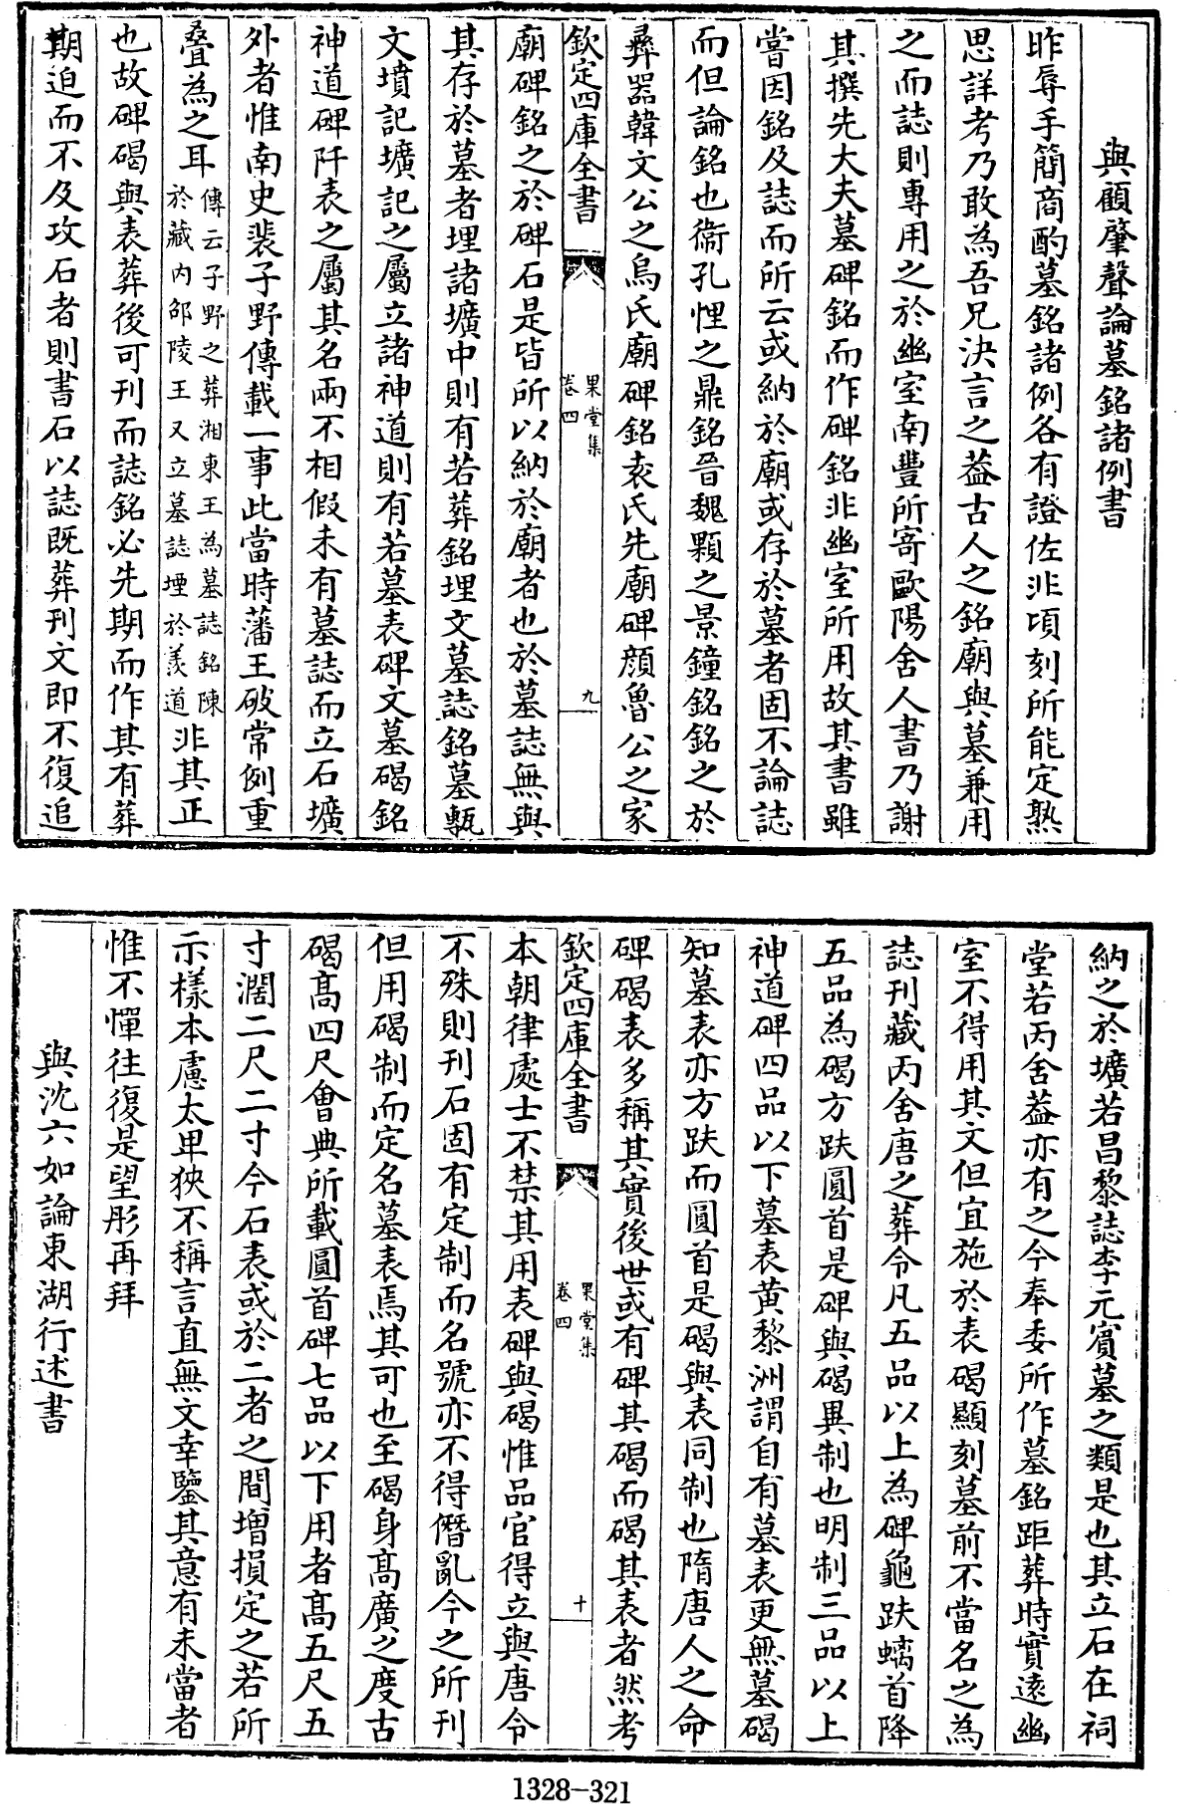 與顧肇聲論墓銘諸例書
昨辱手簡商酌墓銘諸例各有證佐非頃刻所能定熟
思詳考乃敢為吾兄決言之葢古人之銘廟與墓兼用
之而誌則專用之於幽室南豐所寄歐陽舍人書乃謝
其撰先大夫墓碑銘而作碑銘非幽室所用故其書雖
嘗因銘及誌而所云或納於廟或存於墓者固不論誌
而但論銘也衞孔悝之鼎銘晉魏顆之景鐘銘銘之於
彞器韓文公之烏氏廟碑銘袁氏先廟碑顏魯公之家
欽定四庫全書
果堂集
卷四
九
廟碑銘之於碑石是皆所以納於廟者也於墓誌無與
其存於墓者埋諸壙中則有若葬銘埋文墓誌銘墓甎
文墳記壙記之屬立諸神道則有若墓表碑文墓碣銘
神道碑阡表之屬其名兩不相假未有墓誌而立石壙
外者惟南史裴子野傳載一事此當時藩王破常例重
疊為之耳傳云子野之葬湘東王為墓誌銘陳
於藏內邵陵王又立墓誌堙於羨道非其正
也故碑碣與表葬後可刊而誌銘必先期而作其有葬
期迫而不及攻石者則書石以誌既葬刊文即不復追
納之於壙若昌黎誌李元賓墓之類是也其立石在祠
堂若丙舍葢亦有之今奉委所作墓銘距葬時實遠幽
室不得用其文但宜施於表碣顯刻墓前不當名之為
誌刊藏丙舍唐之葬令凡五品以上為碑龜趺螭首降
五品為碣方趺圓首是碑與碣異制也明制三品以上
神道碑四品以下墓表黄黎洲謂自有墓表更無墓碣
知墓表亦方趺而圓首是碣與表同制也隋唐人之命
碑碣表多稱其實後世或有碑其碣而碣其表者然考
欽定四庫全書
果堂集
卷四
十
本朝律處士不禁其用表碑與碣惟品官得立與唐令
不殊則刊石固有定制而名號亦不得僭亂今之所刊
但用碣制而定名墓表焉其可也至碣身高廣之度古
碣高四尺會典所載圓首碑七品以下用者高五尺五
寸濶二尺二寸今石表或於二者之間增損定之若所
示様本慮太卑狹不稱言直無文幸鑒其意有未當者
惟不憚往復是望彤再拜
與沈六如論東湖行述書
1328-321